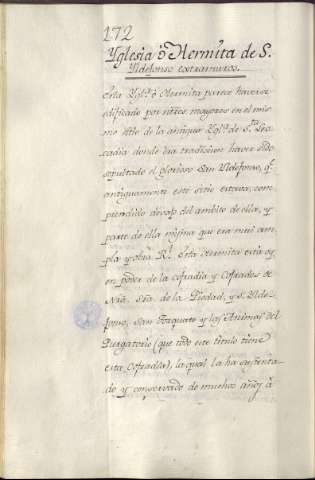 172
Yglesia ô Hermita de S.
Yldefonso extramuros.
Esta Ygl.ª ô Hermita parece haverse
edificado por ntros mayores en el mis
mo sitio de la antigua Ygl.ª de S.ta Leo
cadia donde dra tradicion haver sido
sepultado el glorioso San Yldefonso, q.e
antiguamente este sitio estava com
prendido devajo del ambito de ella, y
parte de ella misma que era mui am
pla y obra R.l Esta Hermita està oy
en poder de la cofradia y Cofrades de
Nra. Sra. de la Piedad, y S. Ylde
fonso, San Torquato y las Animas del
Purgatorio (que todo este titulo tiene
esta Cofradia), la qual la ha sustenta
do y conservado de muchos años â